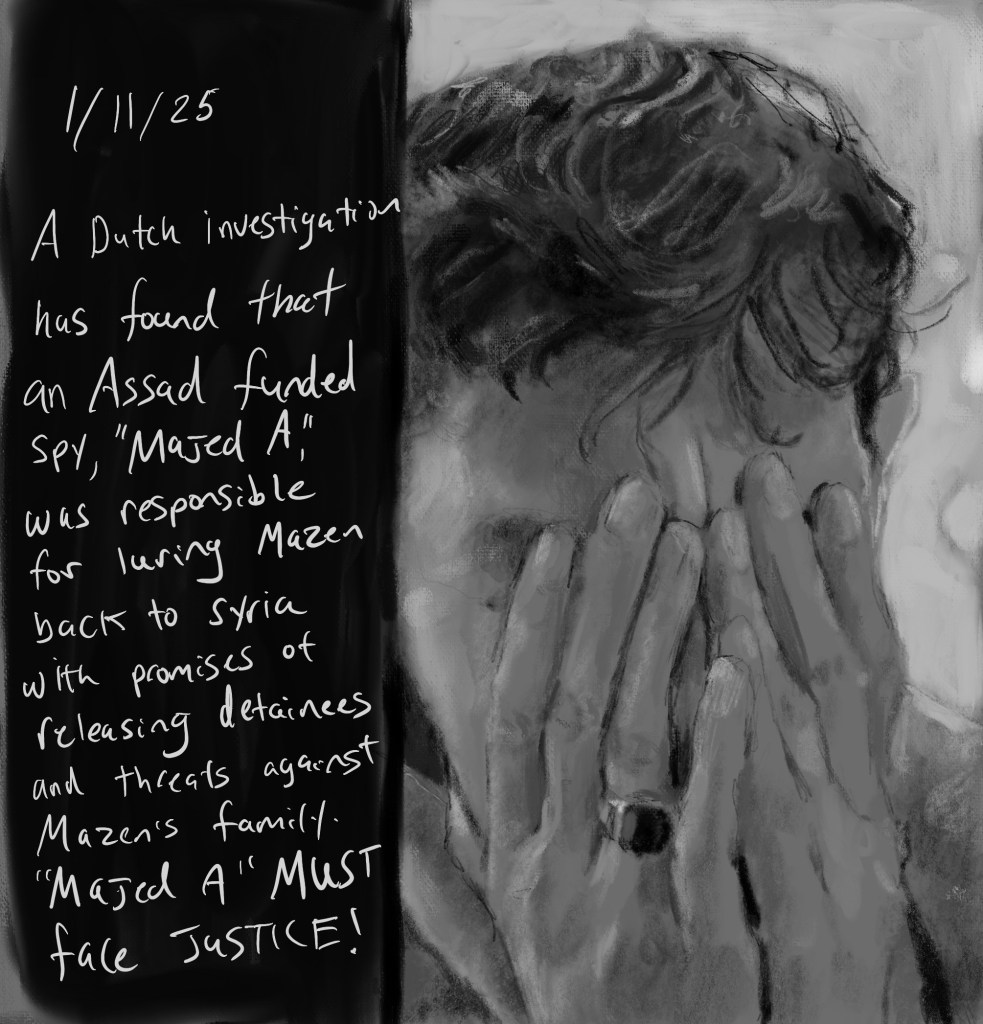 1/11/25
A Dutch investigation
has found that
an Assad funded
spy, "Majed A",
was responsible
for luring Mazen
back to Syria
with promises of
releasing detainees
and threats against
Mazen's family.
"Majed A" MUST
face JUSTICE!